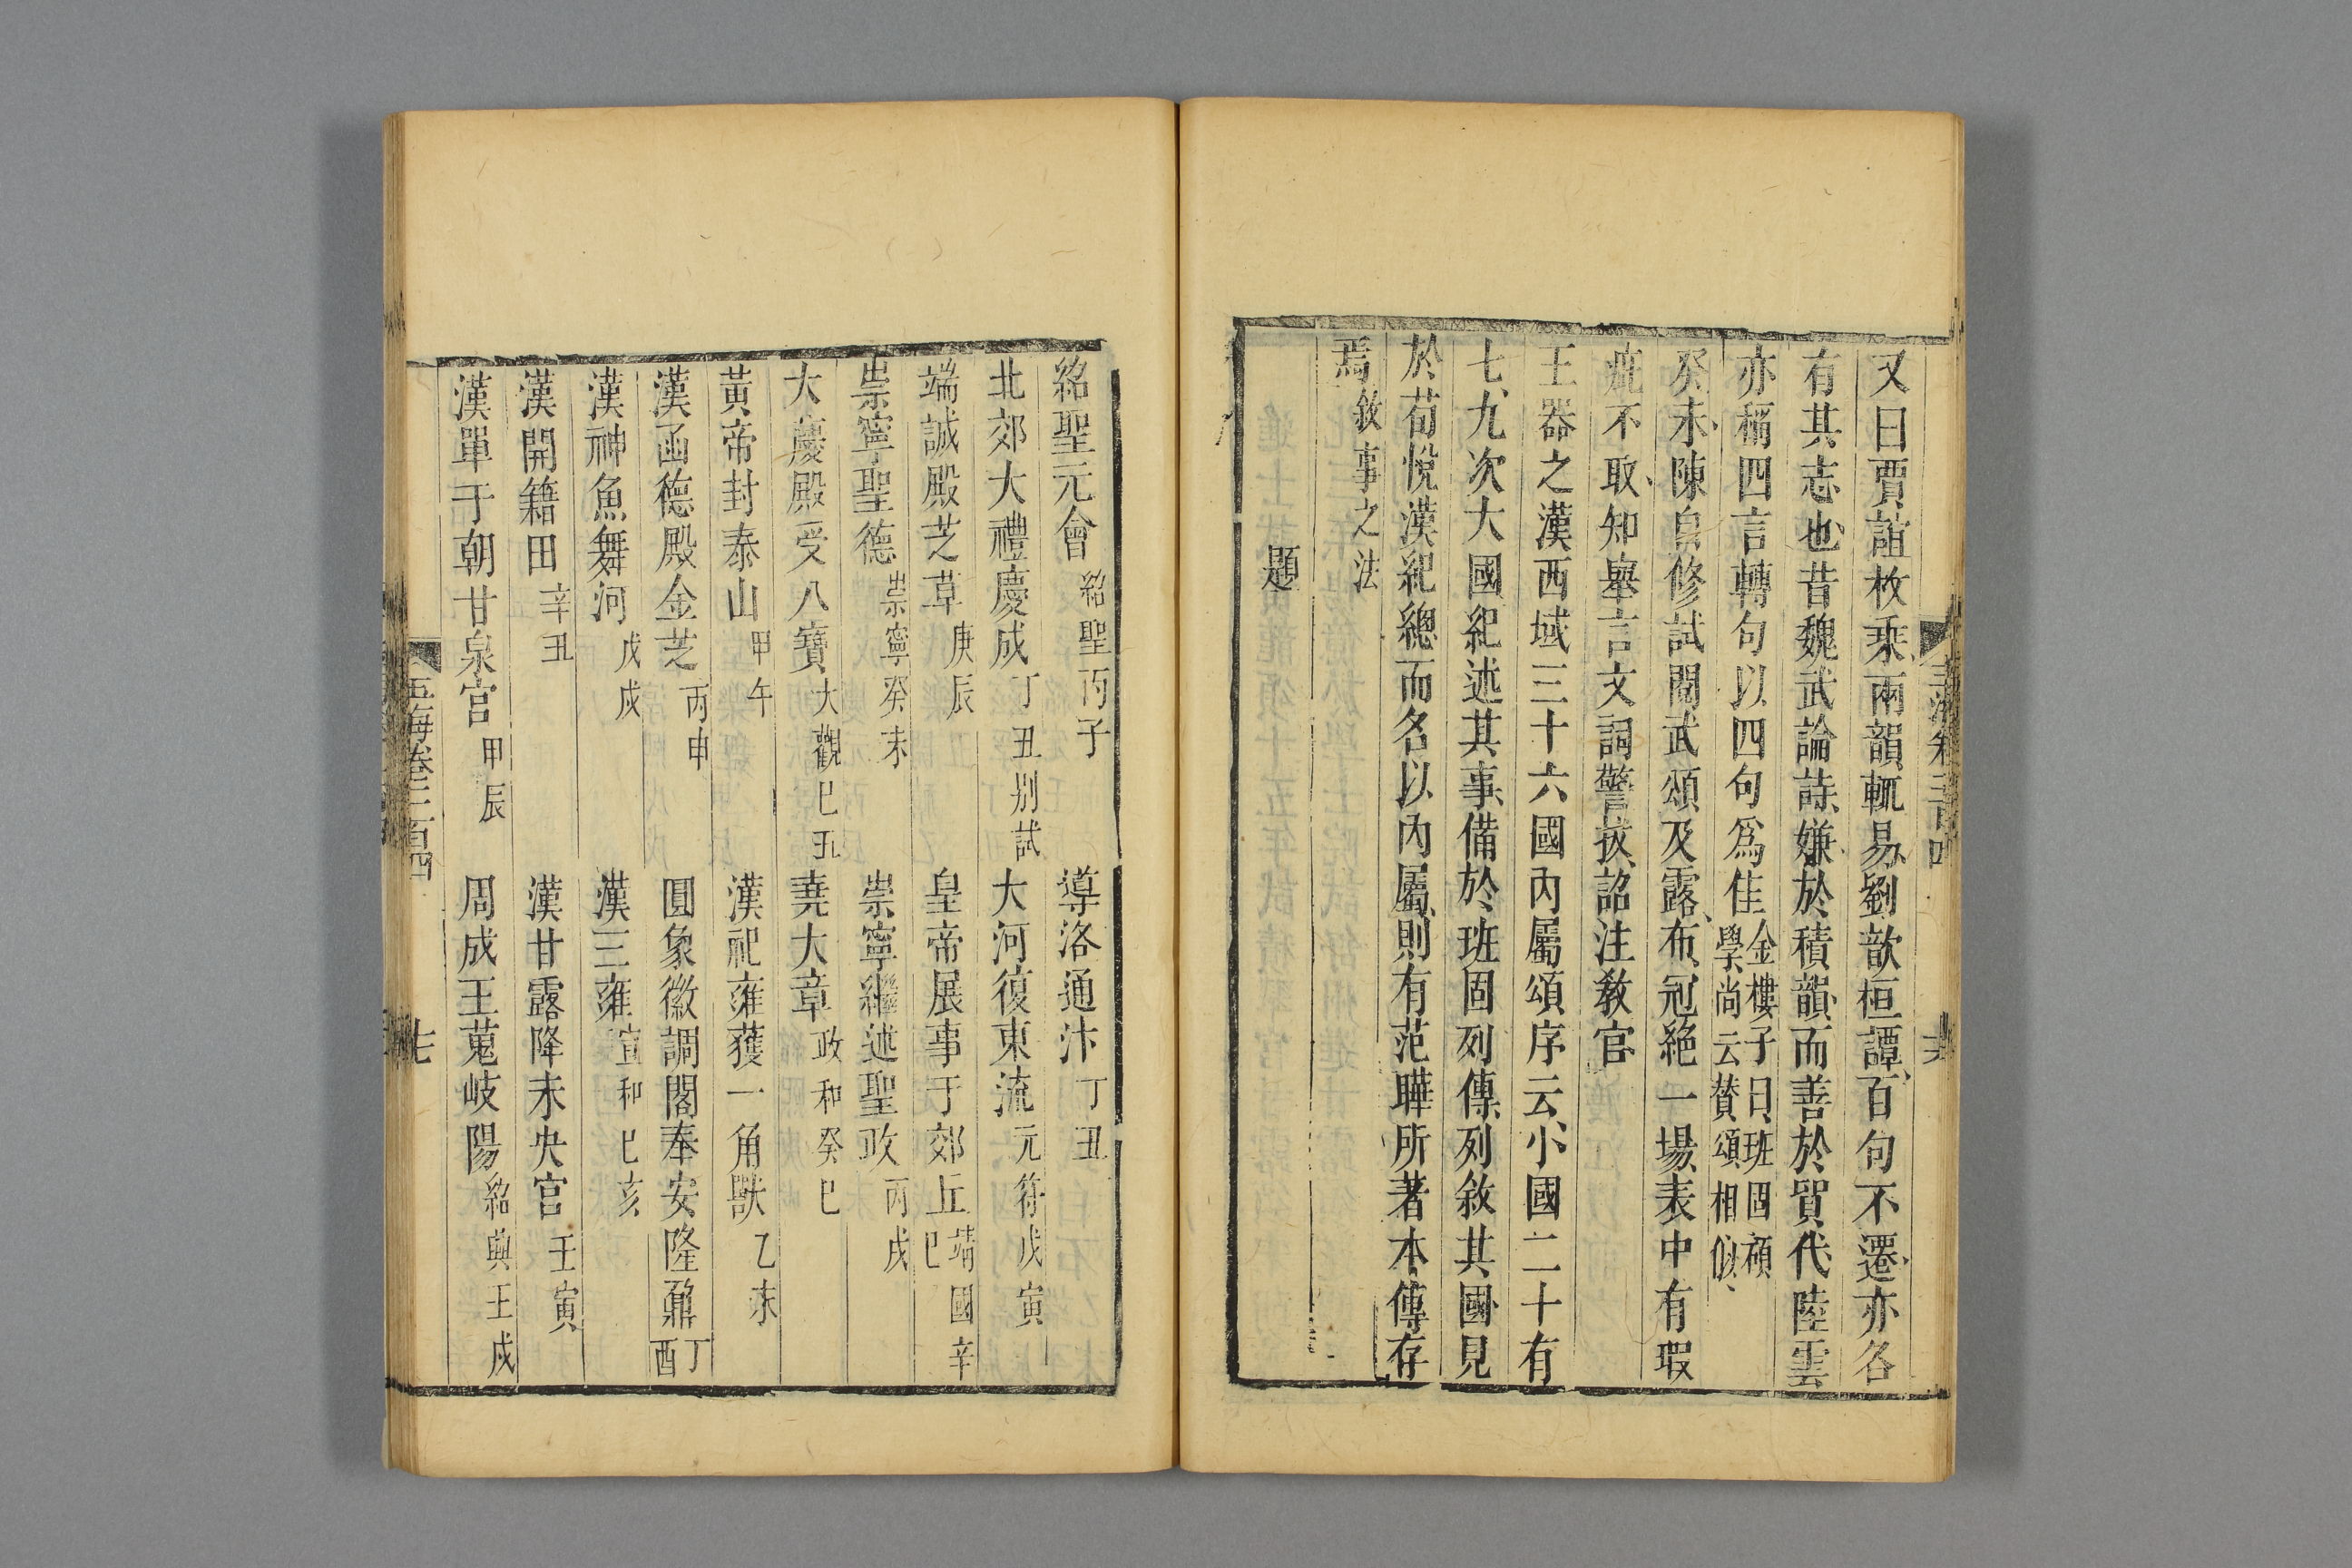 又曰賈誼枚乘兩韻輒易劉歆桓譚百句不遷亦各
有其志也昔魏武論詩嫌於積韻而善於貿代陸雲
亦稱四言轉句以四句爲佳金樓子曰班固碩學尚云贊頌相似
癸未陳自修試閱武頌及露布冠絶一場表中有瑕
疵不取知舉言文詞警拔詔注敎官
王器之漢西域三十六國內屬頌序云小國二十有
七九次大國紀述其事備於班固列傳列敘其國見
於荀悅漢紀總而名以內屬則有范曄所著本傳存
焉敘事之法
題
紹聖元會紹聖丙子 導洛通汴丁丑
北郊大禮慶成丁丑別試 大河復東流元符戊寅
端誠殿芝草庚辰 皇帝展事于郊丘靖國辛巳
崇寧聖德崇寧癸未 崇寧繼述聖政丙戌
大慶殿受八寶大觀己丑 堯大章政和癸巳
黃帝封泰山甲午 漢祀雍獲一角獸乙未
漢函德殿金芝丙申 圓象徽調閣奉安隆鼐丁酉
漢神魚舞河戊戌 漢三雍宣和己亥
漢開籍田辛丑 漢甘露降未央宮壬寅
漢單于朝甘泉宮甲辰 周成王蒐岐陽紹興壬戌
玉海卷二百四 七